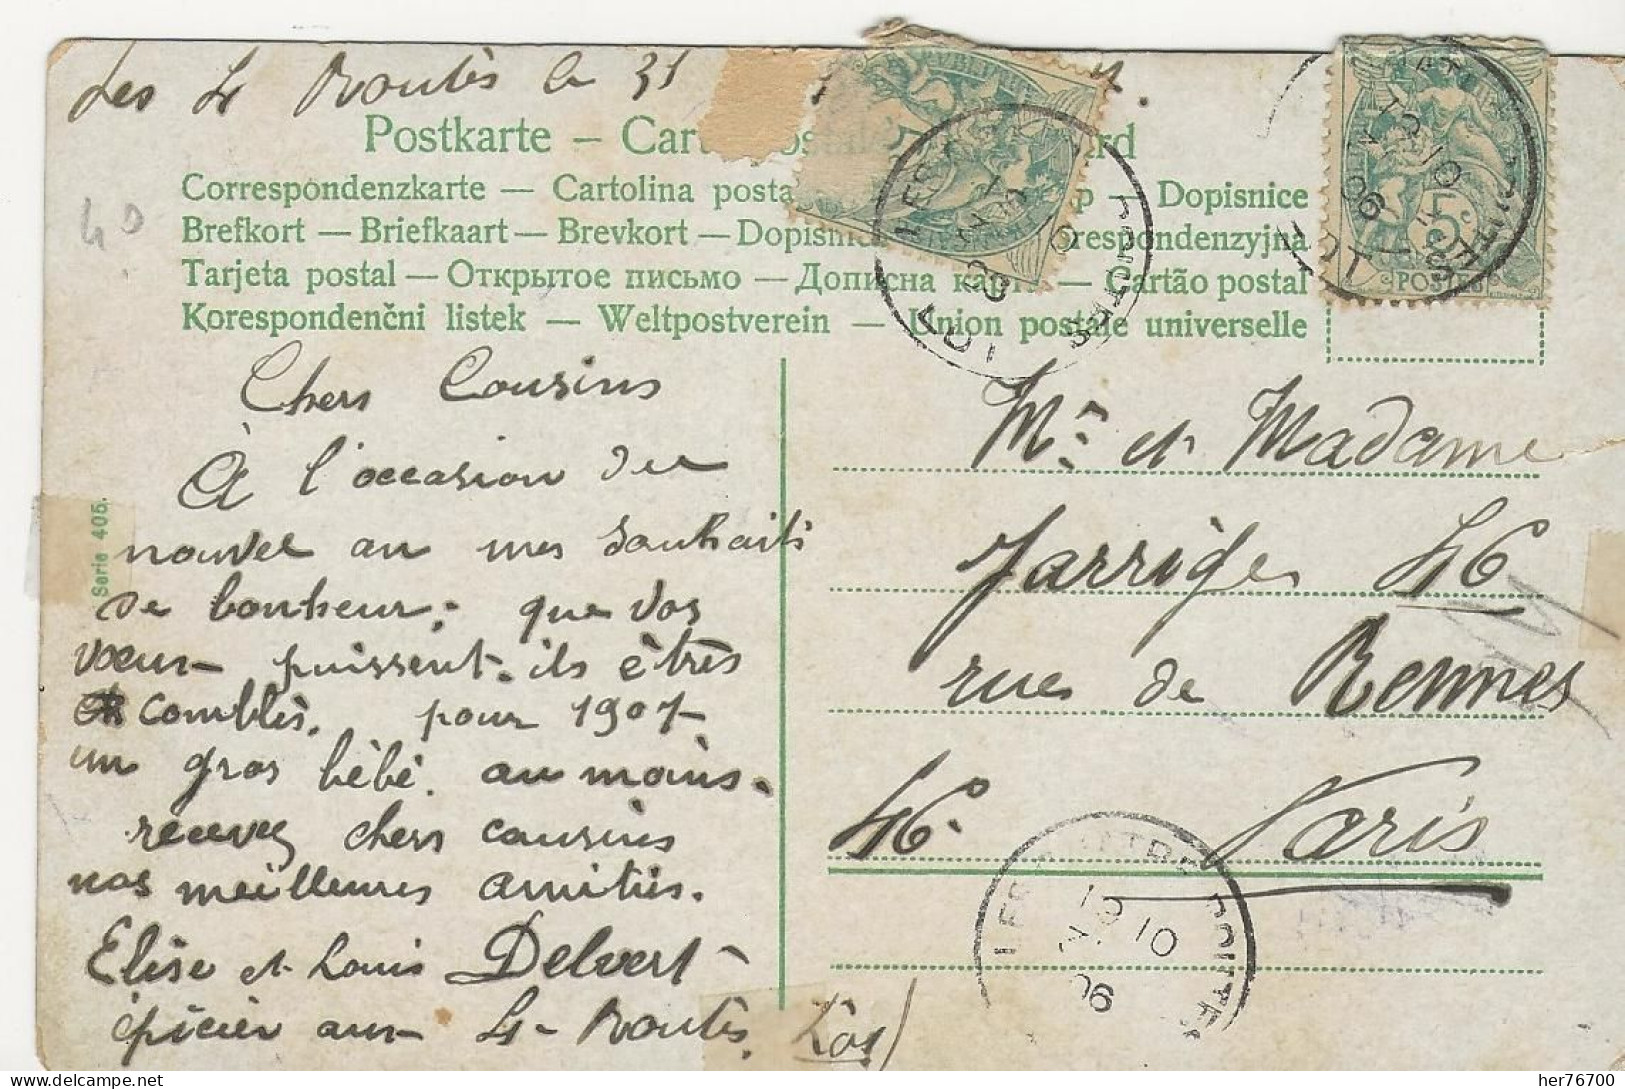 Les 4 Routès le 31
Postkarte – Car
Correspondenzkarte — Cartolina posta p — Dopisnice
Brefkort — Briefkaart — Brevkort — Dopisnic respondenzyjna
Tarjeta postal — Открытое письмо — Дописна карт — Cartão postal
Korespondenčni listek — Weltpostverein — Union postale universelle
Chers Cousins
À l'occasion du
nouvel an mes souhaits
de bonheur; que vos
vœux puissent-ils êtrès
comblès. pour 1907
un gros bèbè. au moins.
recevez chers cousins
nos meilleures amitiès.
Elise et Louis Delvert
èpicier aux 4 Routès. Lot)
Serie 405.
40
Mr et Madame
Jarrige 46
rue de Rennes
46. Paris
5c
POSTES
LES QUATRE ROUTES
LOT
10
06